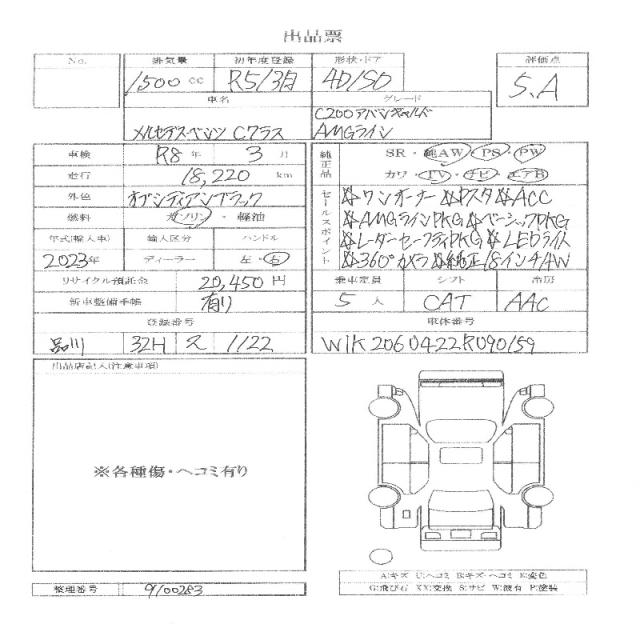 出品票
No. 排気量 初年度登録 形状・ドア 評価点
1500 cc R5/3月 4D/SD 5.A
車名 グレード
メルセデス・ベンツ Cクラス C200アバンギャルド
AMGライン
車検 R8 年 3 月
走行 18,220 km
外色 オブシディアンブラック
燃料 ガソリン・軽油
年式(輸入車) 輸入区分 ハンドル
2023年 ディーラー 左・右
リサイクル預託金 20,450 円
新車整備手帳 有り
登録番号
品川 32H ス 1122
純正品 SR・純AW・PS・PW
カワ・TV・ナビ・エアB
セールスポイント ※ワンオーナー※Pスタ※ACC
※AMGラインPKG※ベーシックPKG
※レーダーセーフティPKG※LEDライト
※360°カメラ※純正18インチAW
乗車定員 シフト 冷房
5 人 CAT AAC
車体番号
W1K2060422R090159
出品店記入(注意事項)
※各種傷・ヘコミ有り
整理番号 9100283
A:キズ U:ヘコミ B:キズ・ヘコミ E:変色
G:飛び石 XX:交換 S:サビ W:波有 P:塗装